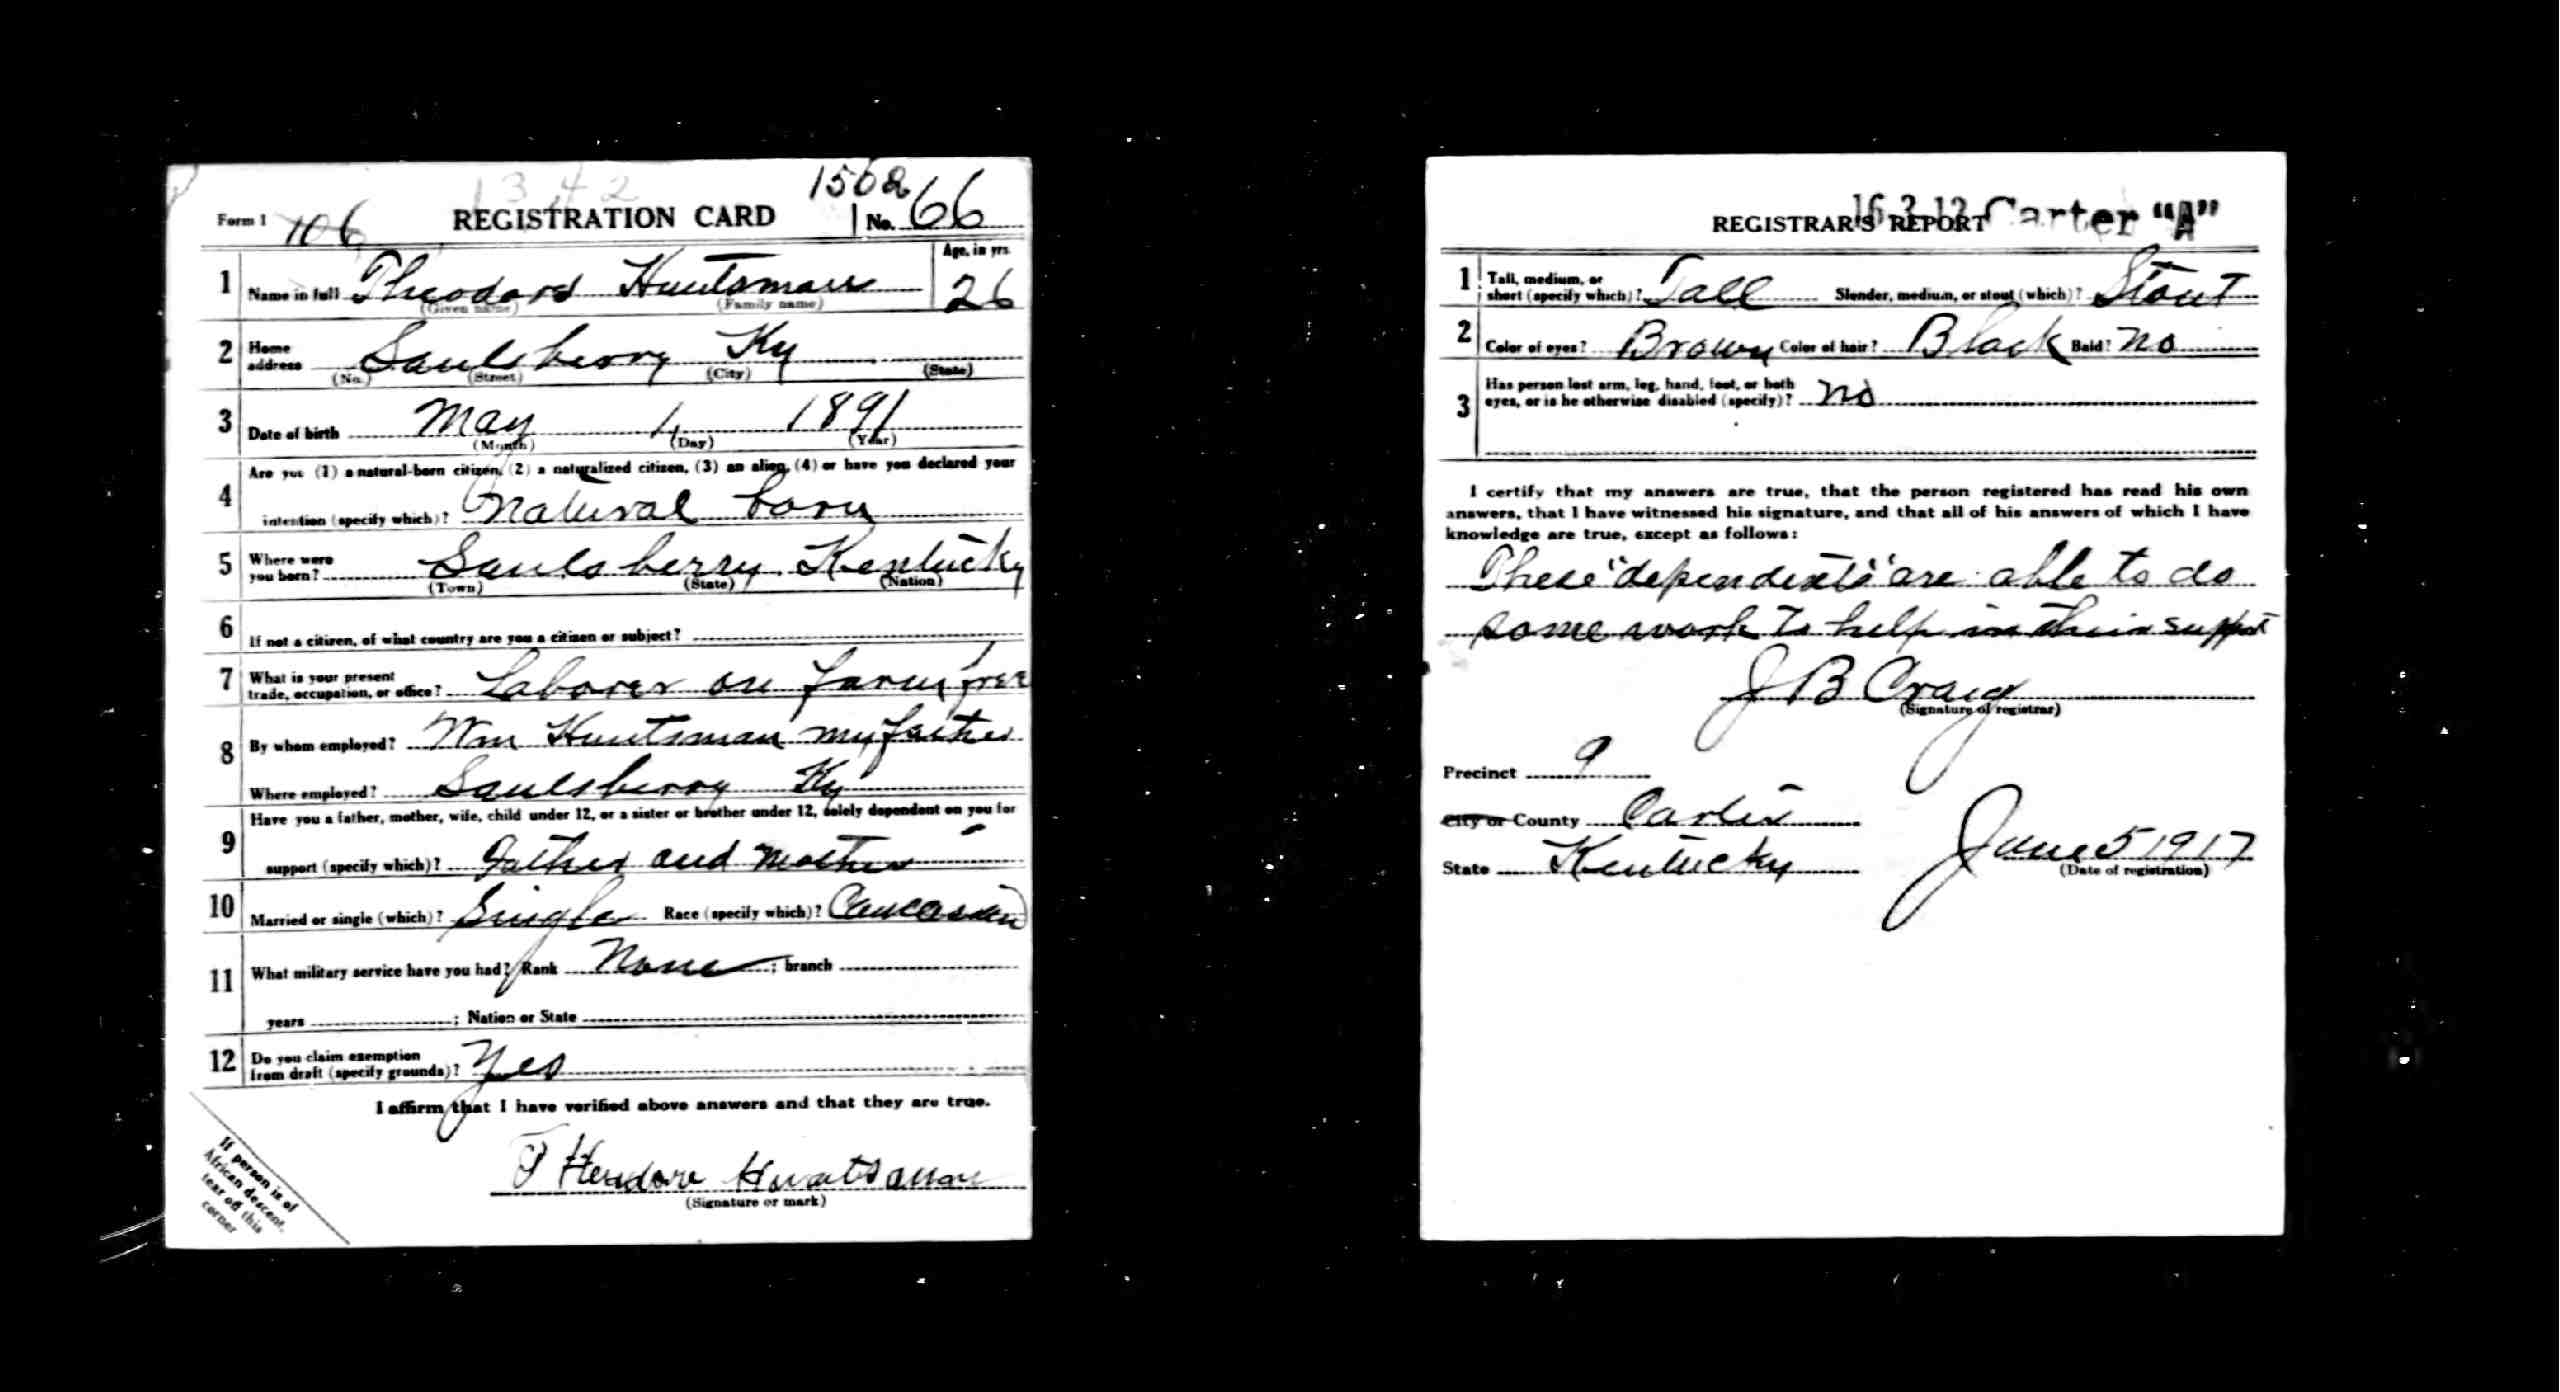 1342
1562
Form 1 106 REGISTRATION CARD No. 66
1 Name in full Theodore Huntsman Age, in yrs. 26
(Given name) (Family name)
2 Home address Saulsberry Ky
(No.) (Street) (City) (State)
3 Date of birth May 1 1891
(Month) (Day) (Year)
4 Are you (1) a natural-born citizen, (2) a naturalized citizen, (3) an alien, (4) or have you declared your
intention (specify which)? Natural born
5 Where were you born? Saulsberry Kentucky
(Town) (State) (Nation)
6 If not a citizen, of what country are you a citizen or subject?
7 What is your present trade, occupation, or office? Laborer on farm
8 By whom employed? Wm Huntsman my father
Where employed? Saulsberry Ky
9 Have you a father, mother, wife, child under 12, or a sister or brother under 12, solely dependent on you for
support (specify which)? Father and Mother
10 Married or single (which)? Single Race (specify which)? Caucasian
11 What military service have you had? Rank None ; branch
years ; Nation or State
12 Do you claim exemption from draft (specify grounds)? Yes
I affirm that I have verified above answers and that they are true.
Theodore Huntsman
(Signature or mark)
If person is of
African descent,
tear off this
corner
REGISTRAR'S REPORT 16 3 12 Carter "A"
1 Tall, medium, or short (specify which)? Tall Slender, medium, or stout (which)? Stout
2 Color of eyes? Brown Color of hair? Black Bald? No
3 Has person lost arm, leg, hand, foot, or both
eyes, or is he otherwise disabled (specify)? No
I certify that my answers are true, that the person registered has read his own
answers, that I have witnessed his signature, and that all of his answers of which I have
knowledge are true, except as follows:
These "dependents" are able to do
some work to help in their support
J B Craig
(Signature of registrar)
Precinct 9
City or County Carter
State Kentucky June 5 1917
(Date of registration)